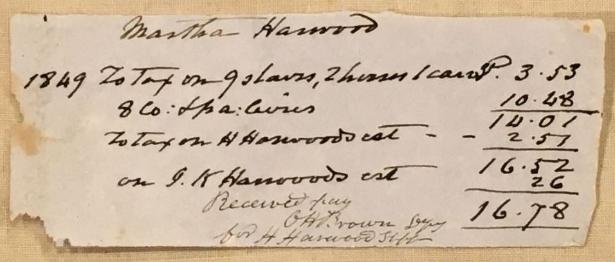 Martha Harwood
1849 To Tax on 9 slaves, 2 horses 1 carr P. 3.53
& Co: & pa: levies 10.48
14.01
To tax on H Harwoods est - - 2.51
16.52
on J. K Harwoods est 26
16.78
Received pay
O H Brown Depy
for H Harwood Shff